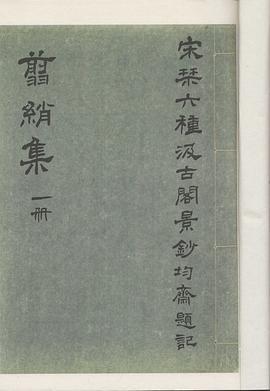 宋槧六種汲古閣景鈔均齋題記
翦綃集 一册